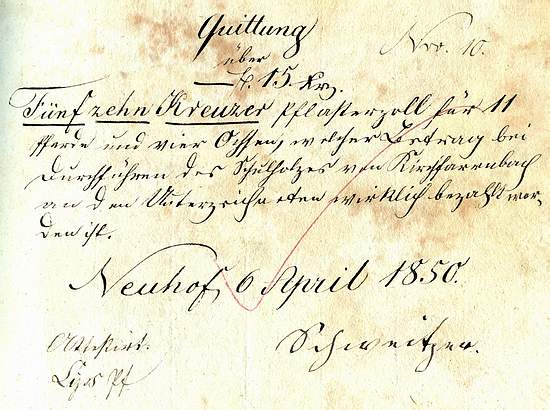 Quittung
Nro. 10.
über
— f. 15. Kr.
Fünfzehn Kreuzer Pflasterzoll für 11
Pferde und vier Ochsen, welcher Betrag bei
Durchführen des Schulholzes von Kirchfarrnbach
an den Unterzeichneten wirklich bezahlt wor-
den ist.
Neuhof, 6 April 1850.
Schweitzer.
Attestirt.